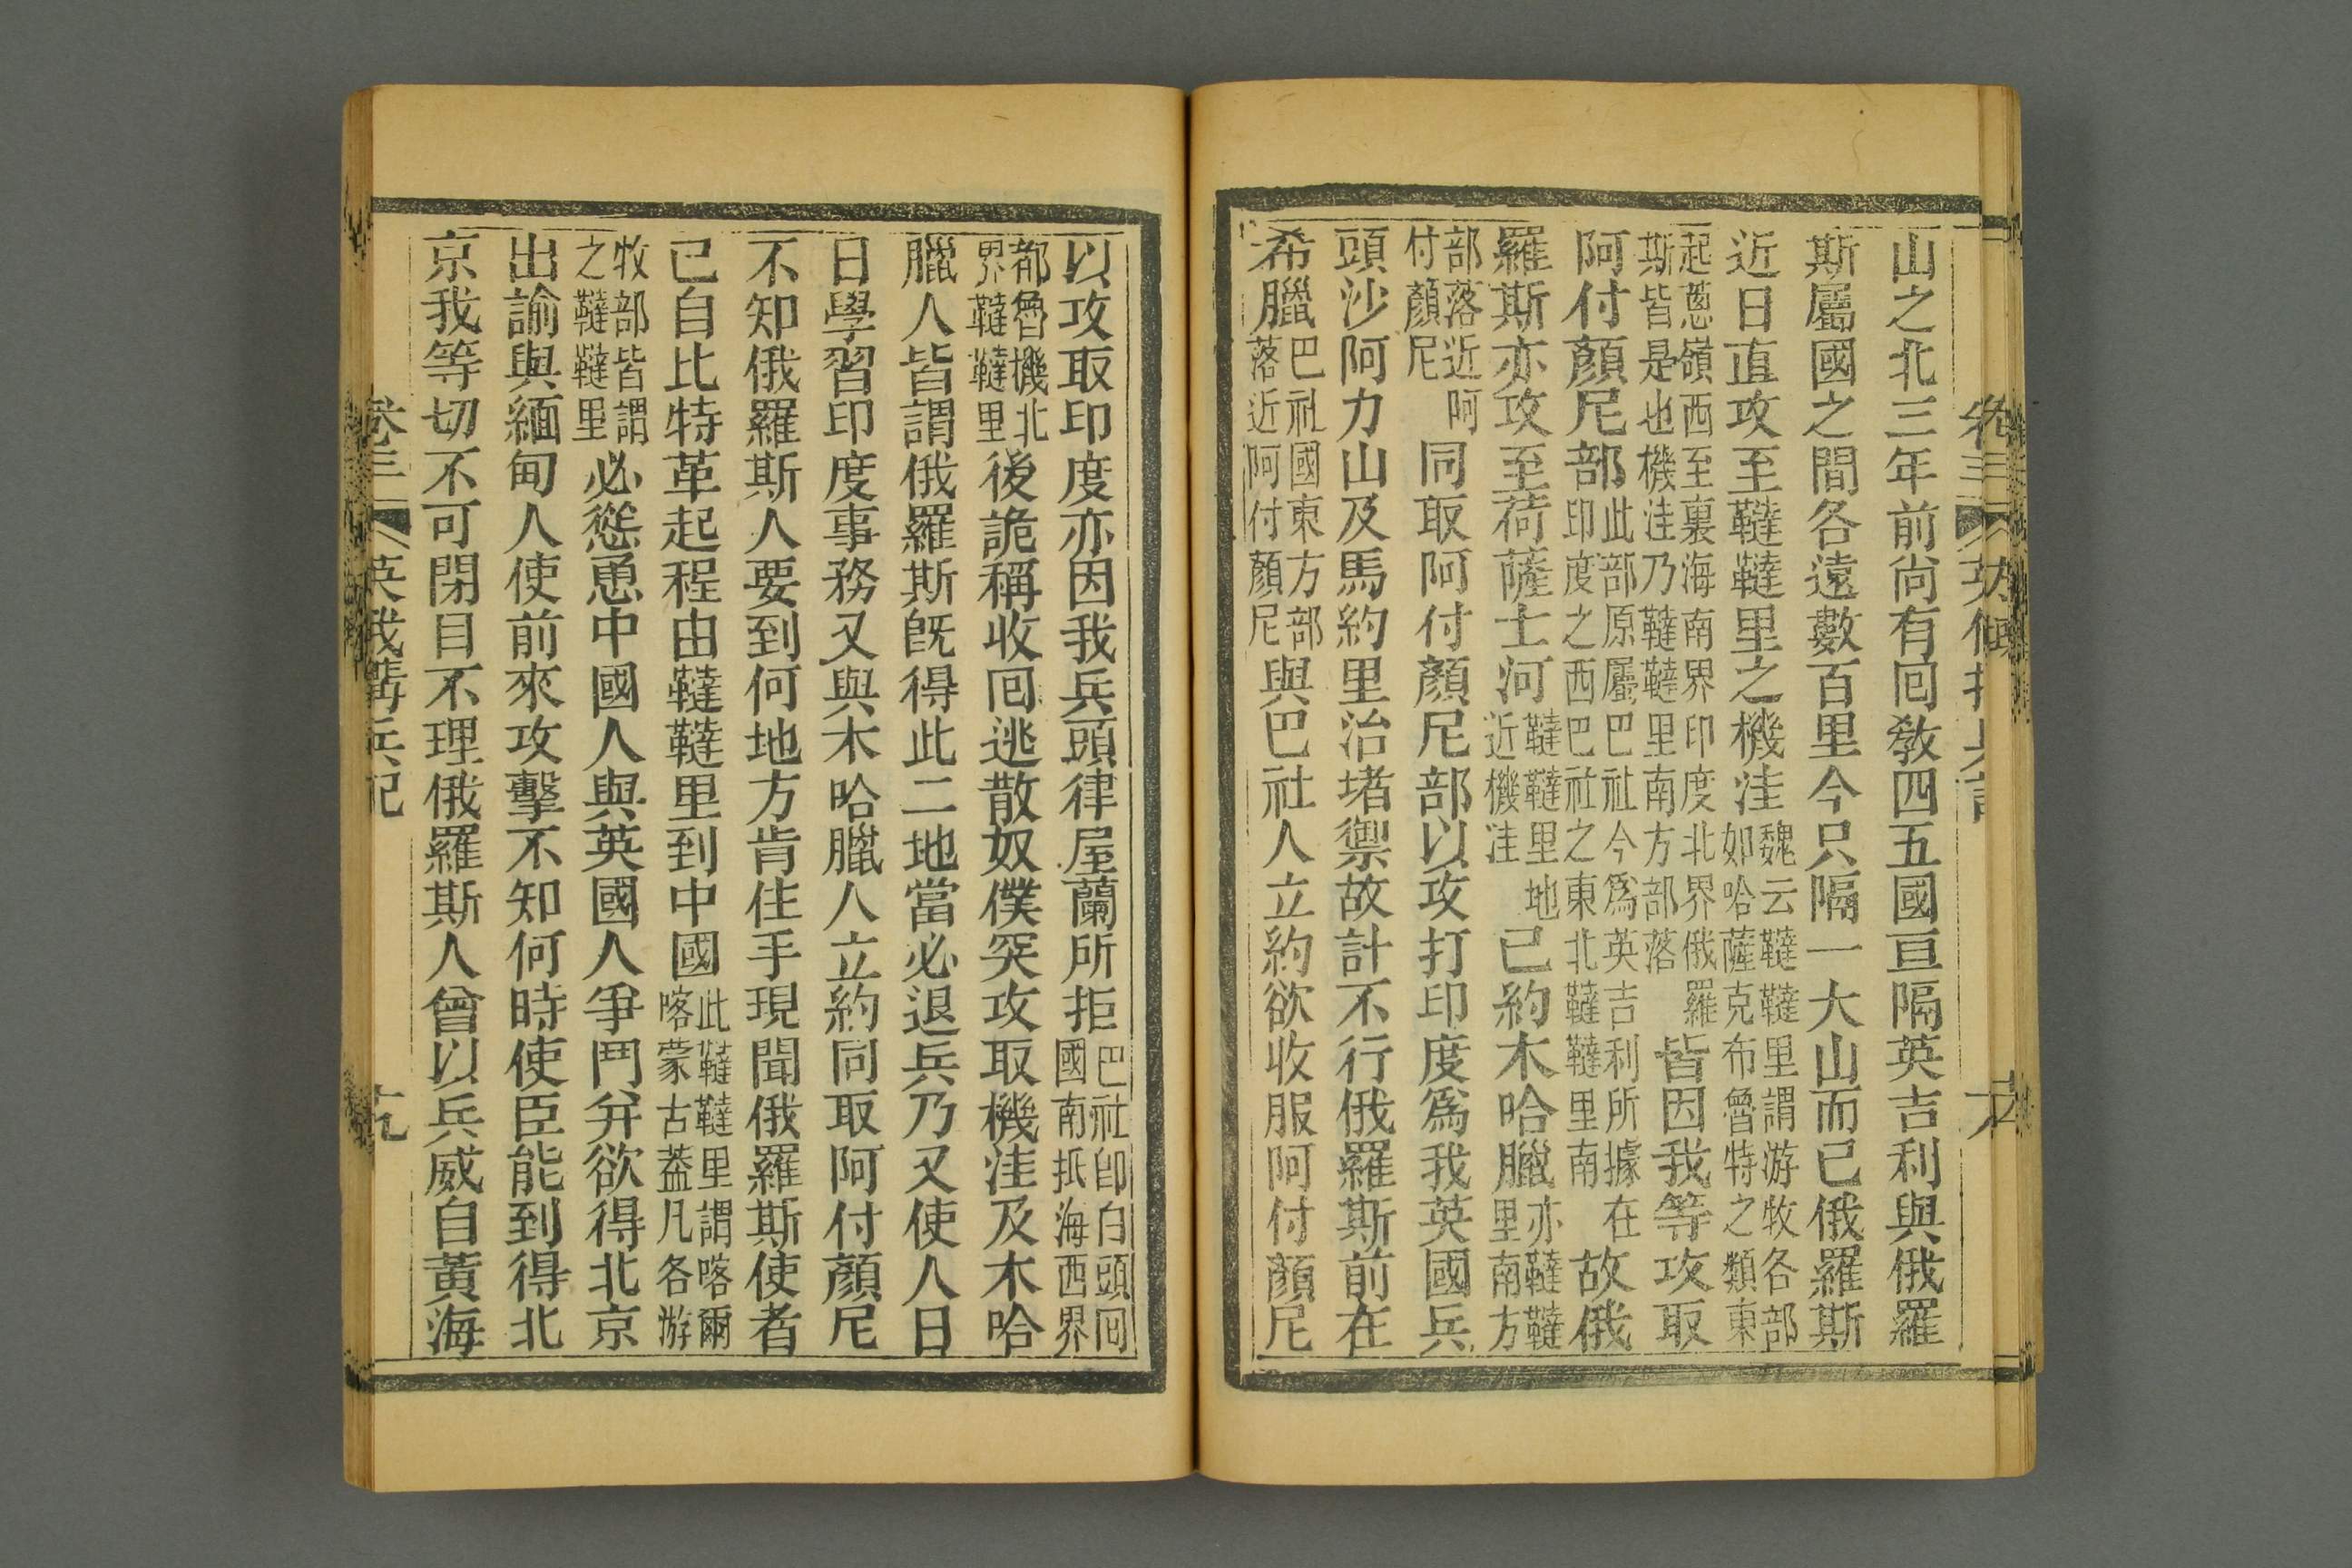 山之北三年前尙有囘敎四五國亘隔英吉利與俄羅
斯屬國之間各遠數百里今只隔一大山而已俄羅斯
近日直攻至韃韃里之機洼魏云韃韃里謂游牧各部如哈薩克布魯特之類東
起蔥嶺西至裏海南界印度北界俄羅斯皆是也機洼乃韃韃里南方部落皆因我等攻取
阿付顏尼部此部原屬巴社今爲英吉利所據在印度之西巴社之東北韃韃里南故俄
羅斯亦攻至荷薩士河韃韃里地近機洼已約木哈臘亦韃韃里南方
部落近阿付顏尼同取阿付顏尼部以攻打印度爲我英國兵
頭沙阿力山及馬約里治堵禦故計不行俄羅斯前在
希臘巴社國東方部落近阿付顏尼與巴社人立約欲收服阿付顏尼
以攻取印度亦因我兵頭律屋蘭所拒巴社卽白頭囘國南抵海西界
都魯機北界韃韃里後詭稱收囘逃散奴僕突攻取機洼及木哈
臘人皆謂俄羅斯旣得此二地當必退兵乃又使人日
日學習印度事務又與木哈臘人立約同取阿付顏尼
不知俄羅斯人要到何地方肯住手現聞俄羅斯使者
已自比特革起程由韃韃里到中國此韃韃里謂喀爾喀蒙古葢凡各游
牧部皆謂之韃韃里必慫恿中國人與英國人爭鬥幷欲得北京
出諭與緬甸人使前來攻擊不知何時使臣能到得北
京我等切不可閉目不理俄羅斯人曾以兵威自黃海
卷三
十九